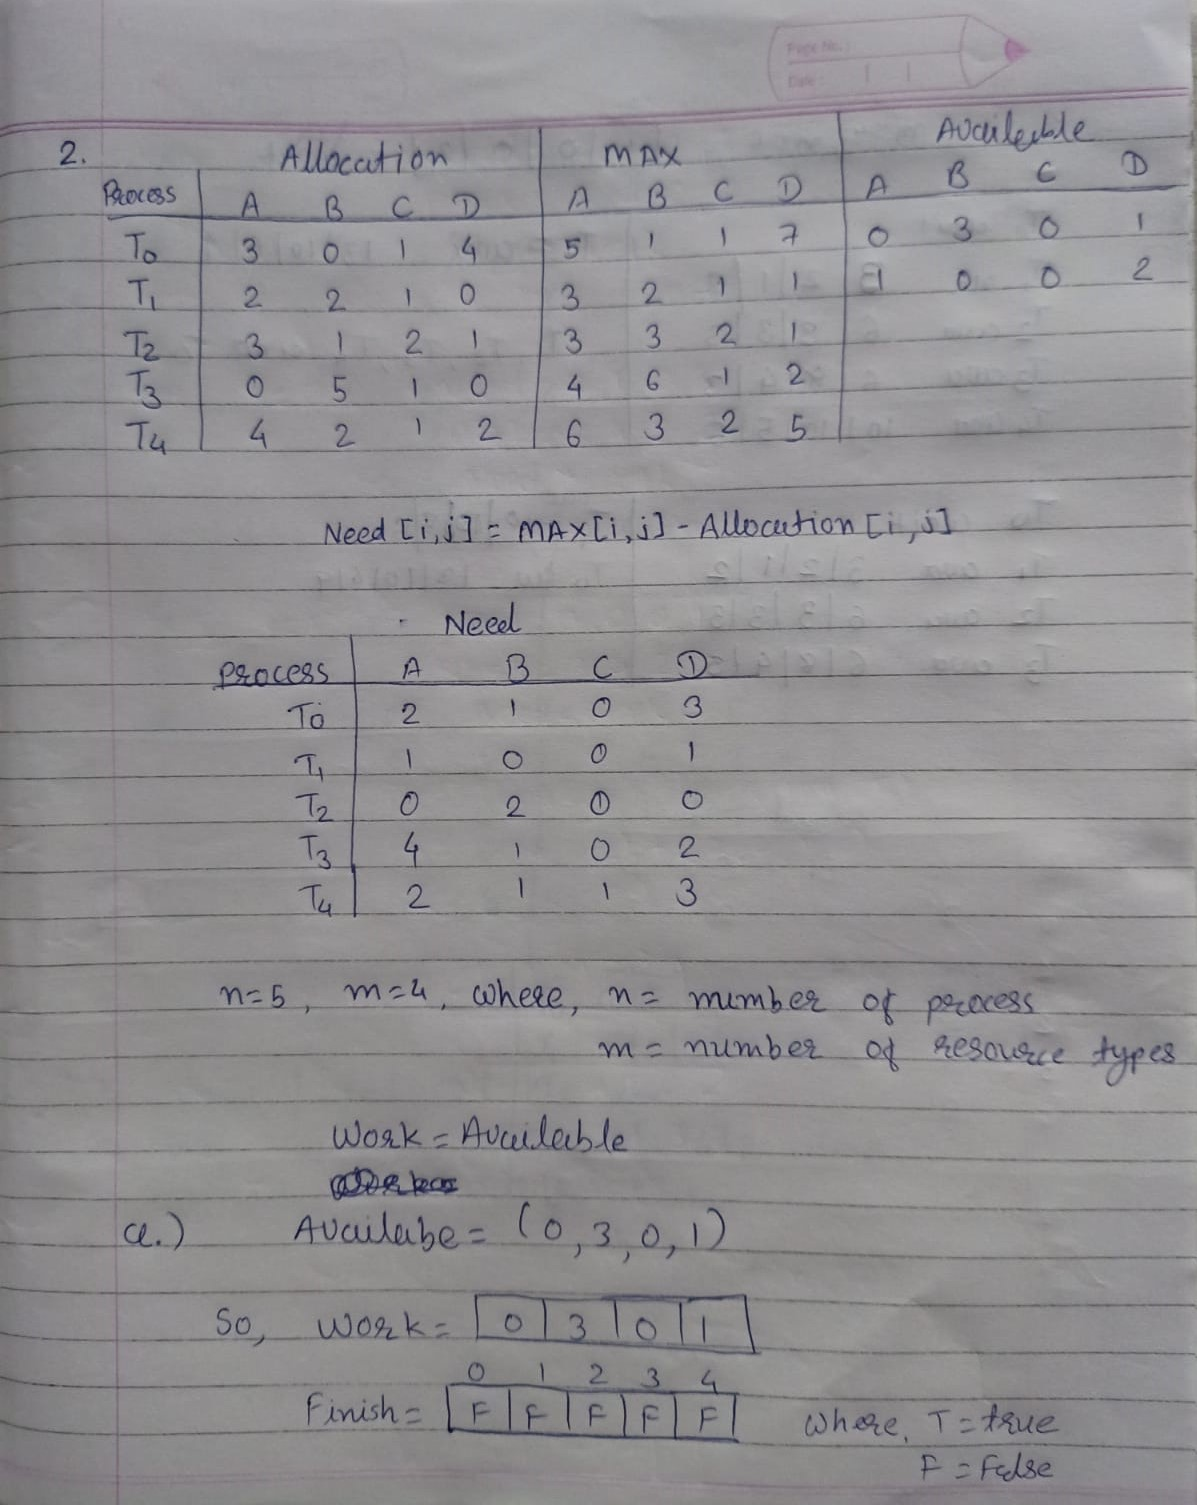 Page No.:
Date:
2. Allocation MAX Available
Process A B C D A B C D A B C D
T0 3 0 1 4 5 1 1 7 0 3 0 1
T1 2 2 1 0 3 2 1 1 1 0 0 2
T2 3 1 2 1 3 3 2 1
T3 0 5 1 0 4 6 1 2
T4 4 2 1 2 6 3 2 5
Need [i,j] = MAX[i,j] - Allocation [i,j]
Need
process A B C D
T0 2 1 0 3
T1 1 0 0 1
T2 0 2 0 0
T3 4 1 0 2
T4 2 1 1 3
n=5, m=4, where, n= number of process
m= number of resource types
Work = Available
a.) Availabe = (0,3,0,1)
So, Work = 0 3 0 1
0 1 2 3 4
Finish = F F F F F where, T = true
F = False